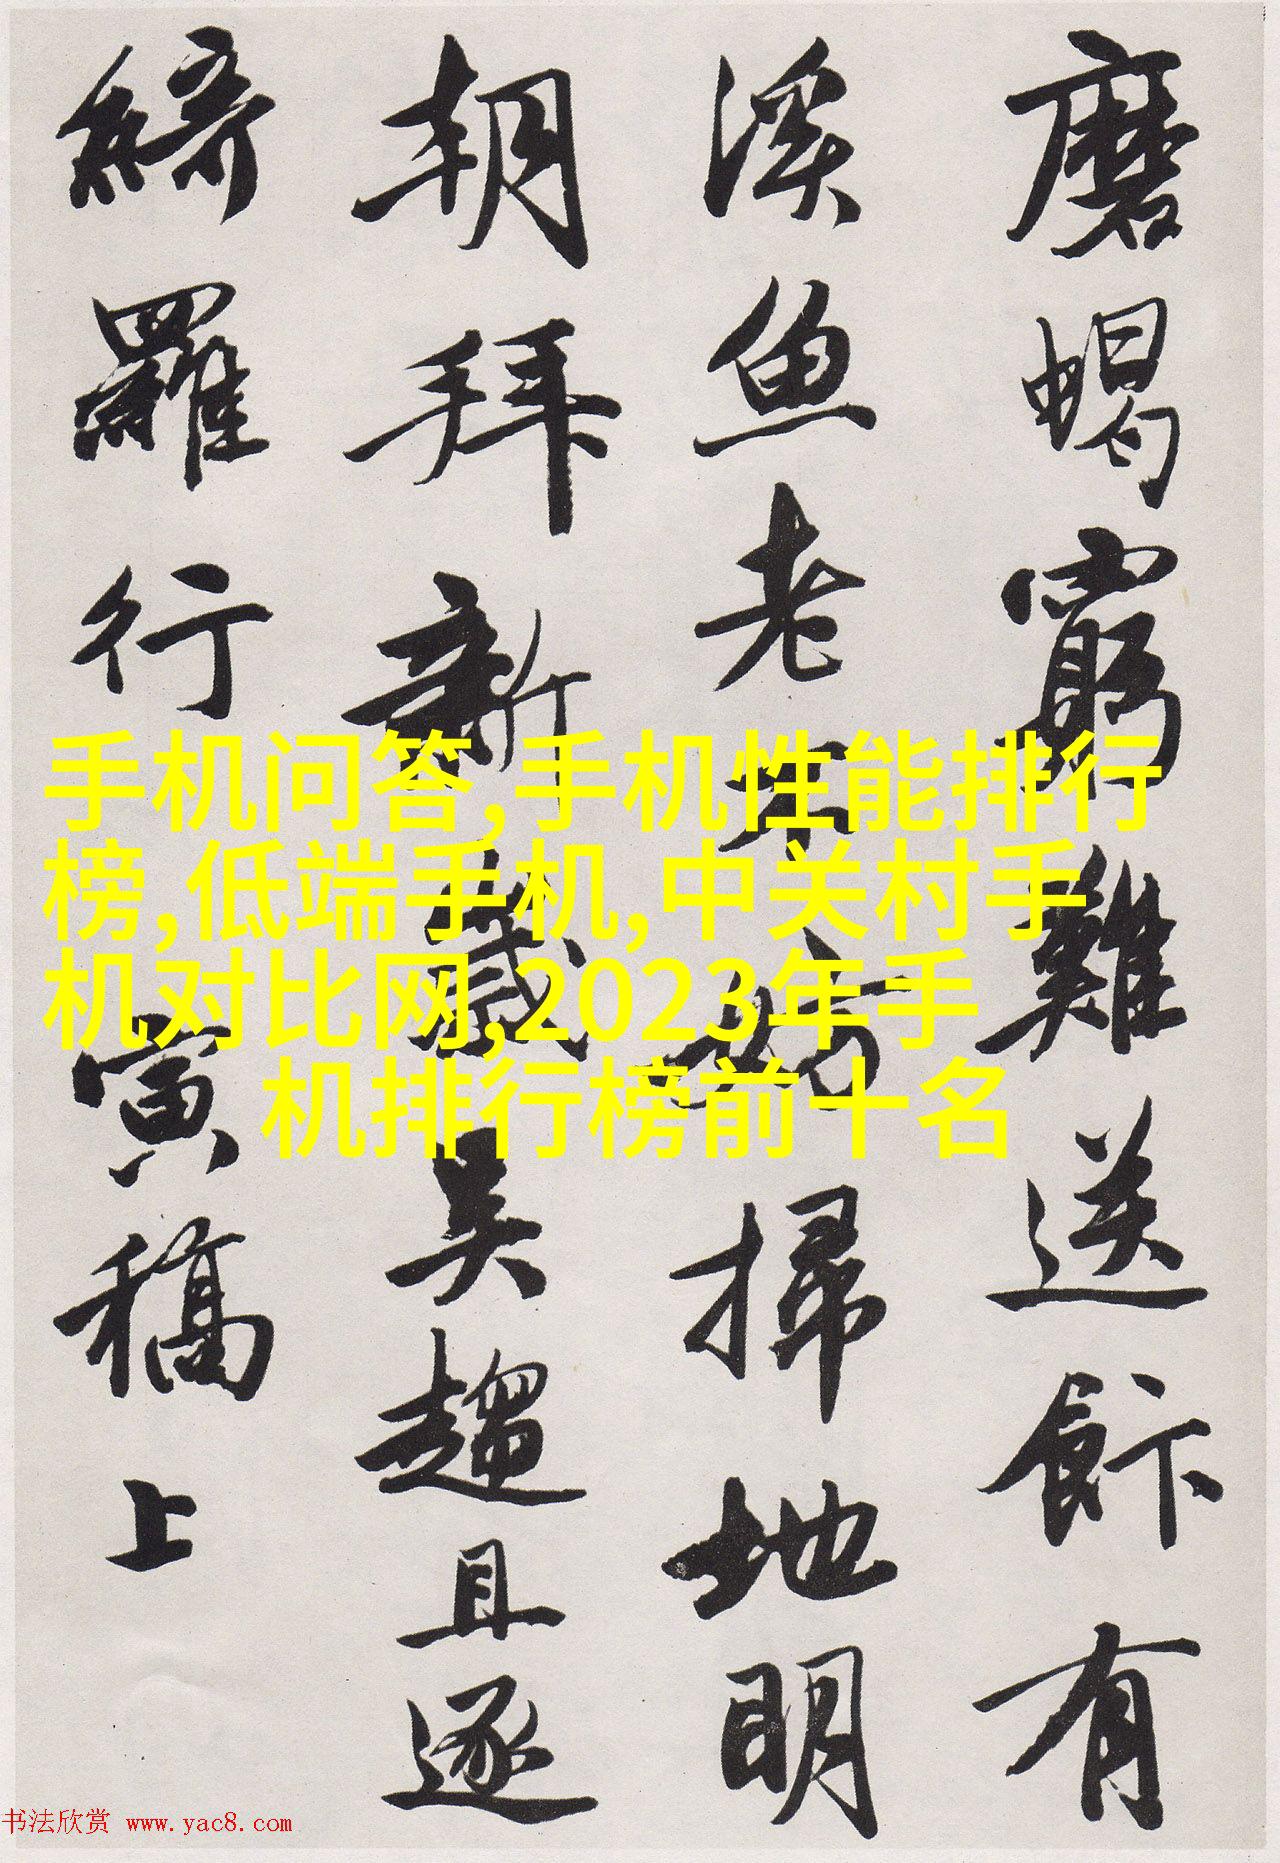 磨蝎窮難送飰有
溪魚老不妨掃地明
朝拜新歲吳趨且逐
綺羅行 寅稿上
手机问答,手机性能排行
榜,低端手机,中关村手
机对比网,2023年手
机排行榜前十名
书法欣赏 www.yac8.com